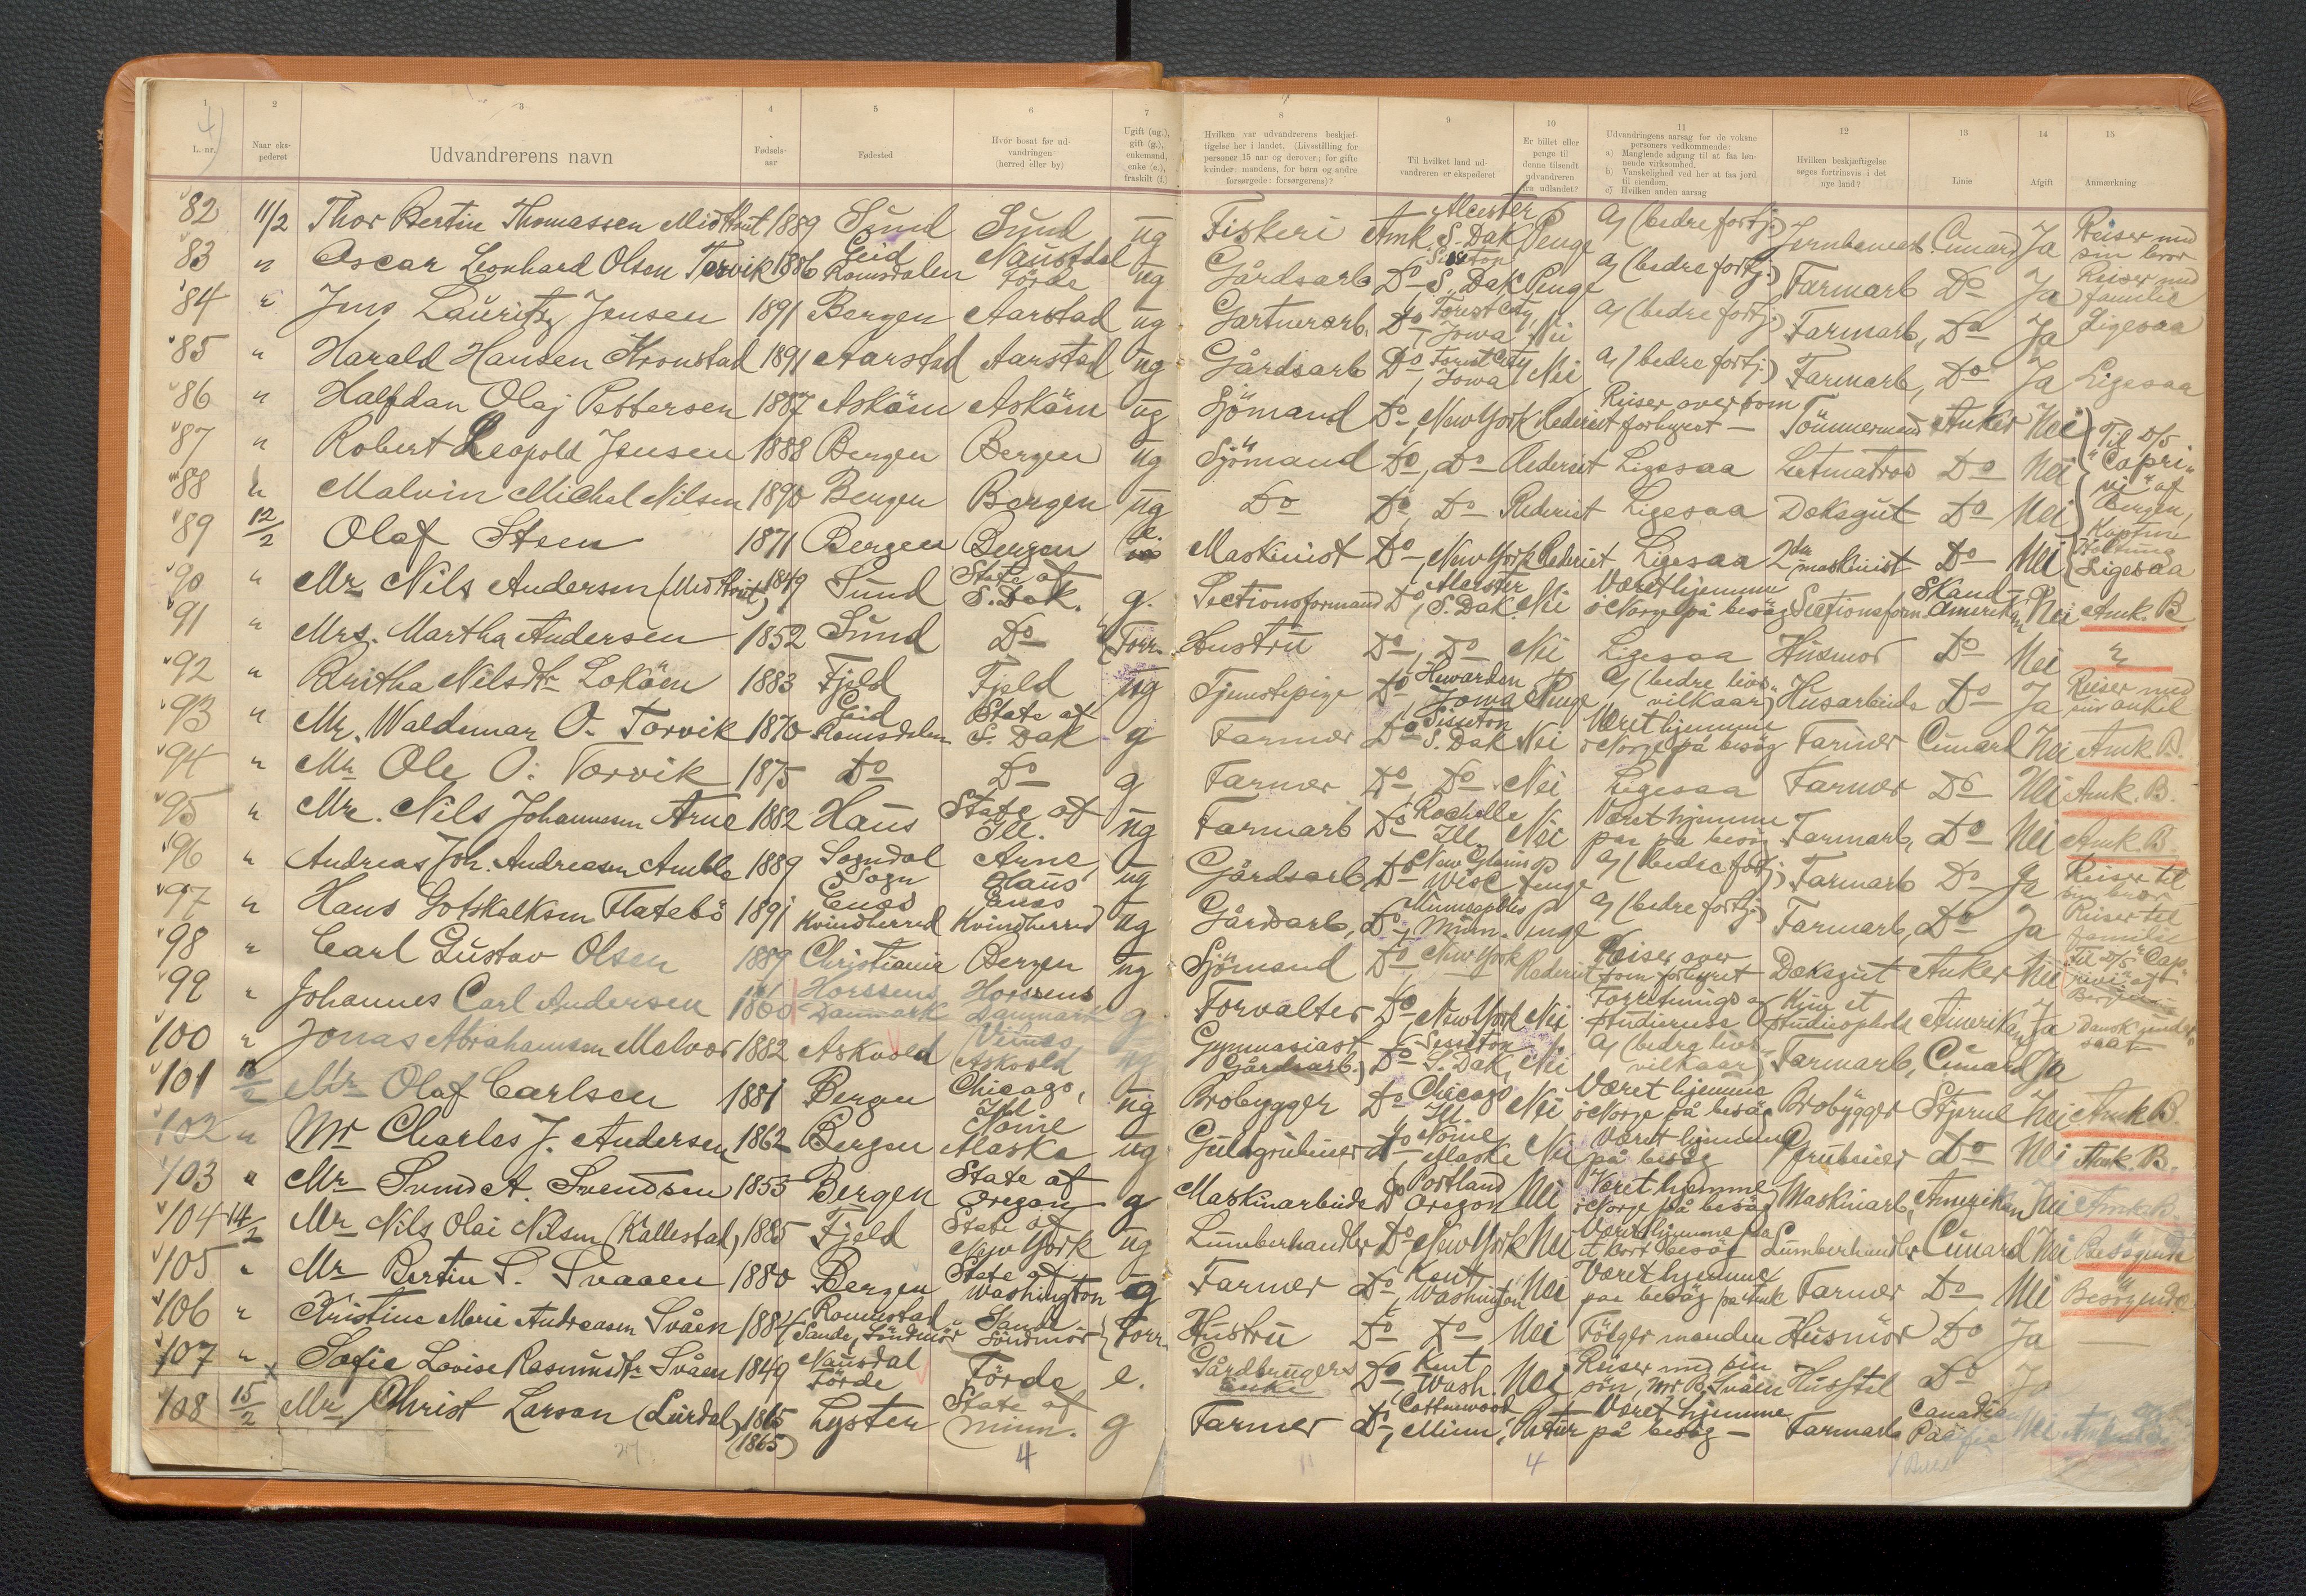 1 2 3 4 5 6 7 8 9 10 11 12 13 14 15
4)
L.-nr. Naar eks-pederet Udvandrerens navn Fødsels-aar Fødested Hvor bosat før ud-vandringen (herred eller by) Ugift (ug.), gift (g.), enkemand, enke (e.), fraskilt (f.) Hvilken var udvandrerens beskjæf-tigelse her i landet. (Livsstilling for personer 15 aar og derover; for gifte kvinder: mandens, for børn og andre forsørgede: forsørgerens)? Til hvilket land ud-vandreren er ekspederet Er billet eller penge til denne tilsendt udvandreren fra udlandet? Udvandringens aarsag for de voksne personers vedkommende: a) Manglende adgang til at faa løn-nende virksomhed. b) Vanskelighed ved her at faa jord til eiendom. c) Hvilken anden aarsag Hvilken beskjæftigelse søges fortrinsvis i det nye land? Linie Afgift Anmærkning
82 11/2 Thor Bertin Thomassen Midthut 1889 Sund Sund ug Fiskeri Amk. Alcester S. Dak Penge a) (bedre fortj.) Jernbanearb. Cunard Ja Reiser med sin bror
83 " Oscar Leonhard Olsen Torvik 1886 Eeid Romsdalen Naustdal Förde ug Gårdsarb Do Sisseton S. Dak Penge a) (bedre fortj.) Farmarb Do Ja Reiser med familie
84 " Jens Lauritz Jensen 1891 Bergen Aarstad ug Gartnerarb. Do Forest City, Jowa Nei a) (bedre fortj.) Farmarb, Do Ja Ligesaa
85 " Harald Hansen Kronstad 1891 Aarstad Aarstad ug Gårdsarb Do Forest City Jowa Nei a) (bedre fortj.) Farmarb, Do Ja Ligesaa
86 " Halfdan Olaj Pettersen 1887 Asköin Asköin ug Sjömand Do, New York Rederiet Reiser over som forhyret — Tömmermand Anker Nei
87 " Robert Leopold Jensen 1888 Bergen Bergen ug Sjömand Do, Do Rederiet Ligesaa Letmatros Do Nei Til D/S "Capri-
88 " Malvin Michal Nilsen 1890 Bergen Bergen ug Do Do, Do Rederiet Ligesaa Doksgut Do Nei vi" af Bergen, Kaptein
89 12/2 Olaf Steen 1871 Bergen Bergen e. Maskinist Do, New York Rederiet Ligesaa 2den maskinist Do Nei Holtung Ligesaa
90 " Mr. Nils Andersen (Midthut) 1849 Sund State of S. Dak. g. Sectionsformand Do, Alcester S. Dak. Nei Været hjemme i Norge på besög Sectionsform. Skand.-Amerika Nei Amk. B.
91 " Mrs. Martha Andersen 1852 Sund Do Forr. Hustru Do, Do Nei Ligesaa Husmor Do Nei "
92 " Britha Nilsdtr Loköen 1883 Fjeld Fjeld ug Tjenstepige Do Hawarden Jowa Penge a) (bedre livs-vilkaar) Husarbeide Do Ja Reiser med sin onkel
93 " Mr. Waldemar O. Torvik 1870 Eeid Romsdalen State of S. Dak g Farmer Do Sisseton S. Dak Nei Været hjemme i Norge på besög Farmer Cunard Nei Amk B.
94 " Mr Ole O. Torvik 1875 Do Do g Farmer Do, Do Nei Ligesaa Farmer Do Nei Amk. B.
95 " Mr. Nils Johannesen Arne 1882 Haus State of Ill. ug Farmarb Do Rochelle Ill. Nei Været hjemme paa besög Farmarb, Do Nei Amk B.
96 " Andreas Joh. Andreasen Amble 1889 Sogndal Sogn Arne, Haus ug Gårdsarb Do Wisc Penge a) (bedre fortj.) Farmarb Do Ja Reiser til sin bror
97 " Hans Gotskalksen Flatebö 1891 Enes Kvindherred Enes Kvindherred ug Gårdsarb, Do, Minneapolis Minn. Penge a) (bedre fortj.) Farmarb, Do Ja Reiser til familie
98 " Carl Gustav Olsen 1889 Christiania Bergen ug Sjömand Do New York Rederiet Reiser over som forhyret Doksgut Anker Nei Til D/S "Cap-rivi" af Bergen
99 " Johannes Carl Andersen 1860 Horssens Danmark Horssens Danmark g Forvalter Do, New York Nei Forretnings og Studiereise Kun et Studieophold Amerikan Ja Dansk under-saat
100 " Jonas Abrahamsen Malvor 1882 Askvold Askvold ug Gymnasiast (Gårdsarb.) Do Sisseton S. Dak, Nei a) (bedre livs-vilkaar) Farmarb, Cunard Ja
101 13/2 Mr Olaf Carlsen 1881 Bergen Chicago, Ill. ug Brobygger Do Chicago Ill. Nei Været hjemme i Norge på besög Brobygger Stjerne Nei Amk B.
102 " Mr Charles J. Andersen 1862 Bergen Nome Alaska ug Guldgrubeier Do, Nome Alaska Nei Været hjemme på besög Grubeeier Do Nei Amk. B.
103 " Mr Svend A. Svendsen 1853 Bergen State of Oregon g Maskinarbeider Do Portland Oregon Nei Været hjemme i Norge på besög Maskinarb, Amerikan Nei Amk. B.
104 14/2 Mr Nils Olai Nilsen (Kallestad) 1885 Fjeld State of New York ug Lumberhandler Do New York Nei Været hjemme paa et kort besög Lumberhandler Cunard Nei Besögende
105 " Mr Bertin S. Svaaen 1880 Bergen State of Washington g Farmer Do, Kent, Washington Nei Været hjemme paa besög Farmer Do Nei Besögende
106 " Kristine Marie Andreasen Svåen 1884 Sande, Söndmör Sande Söndmör Forr. Hustru Do Do Nei Fölger manden Husmör Do Ja —
107 " Sofie Lovise Rasmusdtr Svåen 1849 Nausdal Förde Förde e. Gårdbrugers Enke Do Kent Wash. Nei Reiser med sin sön, Mr B. Svåen Husstel Do Ja
108 15/2 Mr Christ Larson (Lurdal) 1865 (1865) Lyster State of Minn. g Farmer Do, Cottonwood Minn, Retur Været hjemme på besög — Farmarb Canadian Pacific Nei
4 4